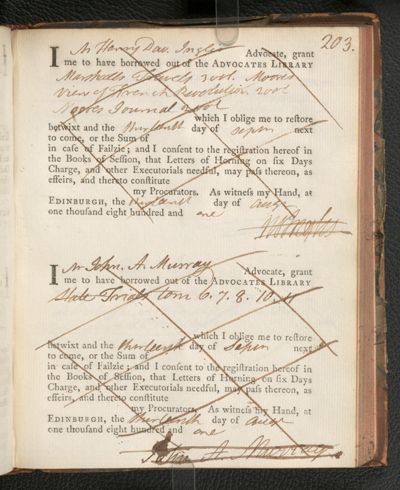 203.
I Mr Harry Dav. Inglis Advocate, grant
me to have borrowed out of the ADVOCATES LIBRARY
Marshalls Travels 3 vol. Moores
View of French Revolution. 2 vol
Journal 2 vol
which I oblige me to reſtore
betwixt and the thirteenth day of Septr next
to come, or the Sum of
in caſe of Failzie; and I conſent to the regiſtration hereof in
the Books of Seſſion, that Letters of Horning on ſix Days
Charge, and other Executorials needful, may paſs thereon, as
effeirs, and thereto conſtitute
my Procurators. As witneſs my Hand, at
EDINBURGH, the thirteenth day of augt
one thouſand eight hundred and one
I Mr John. A. Murray Advocate, grant
me to have borrowed out of the ADVOCATES LIBRARY
State Trials tom 6. 7. 8. 10. 11
which I oblige me to reſtore
betwixt and the thirteenth day of Septr next
to come, or the Sum of
in caſe of Failzie; and I conſent to the regiſtration hereof in
the Books of Seſſion, that Letters of Horning on ſix Days
Charge, and other Executorials needful, may paſs thereon, as
effeirs, and thereto conſtitute
my Procurators. As witneſs my Hand, at
EDINBURGH, the thirteenth day of augt
one thouſand eight hundred and one
John A. Murray